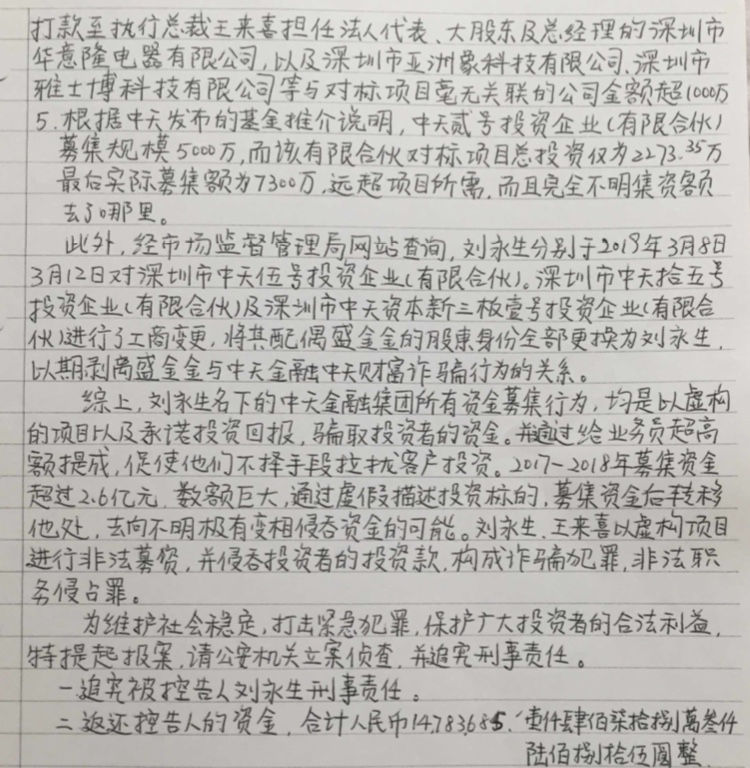 打款至执行总裁王来喜担任法人代表、大股东及总经理的深圳市
华意隆电器有限公司,以及深圳市亚洲象科技有限公司、深圳市
雅士博科技有限公司等与对标项目毫无关联的公司金额超1000万
5.根据中天发布的基金推介说明,中天贰号投资企业(有限合伙)
募集规模5000万,而该有限合伙对标项目总投资仅为2273.35万
最后实际募集额为7300万,远超项目所需,而且完全不明集资各额
去了哪里。
此外,经市场监督管理局网站查询,刘永生分别于2019年3月8日
3月12日对深圳市中天伍号投资企业(有限合伙)。深圳市中天拾五号
投资企业(有限合伙)及深圳市中天资本新三板壹号投资企业(有限合
伙)进行了工商变更,将其配偶盛金金的股東身份全部更换为刘永生,
以期剥离盛金金与中天金融中天财富诈骗行为的关系。
综上,刘永生名下的中天金融集团所有资金募集行为,均是以虚构
的项目以及承诺投资回报,骗取投资者的资金。并通过给业务员超高
额提成,促使他们不择手段拉拢客户投资。2017-2018年募集资金
超过2.6亿元,数额巨大,通过虚假描述投资标的,募集资金后转移
他处,去向不明极有变相侵吞资金的可能。刘永生、王来喜以虚构项目
进行非法募资,并侵吞投资者的投资款,构成诈骗犯罪,非法职
务侵占罪。
为维护社会稳定,打击紧急犯罪,保护广大投资者的合法利益,
特提起报案,请公安机关立案侦查,并追究刑事责任。
一追究被控告人刘永生刑事责任。
二返还控告人的资金,合计人民币14,783,685.壹仟肆佰柒拾捌萬叁仟
陆佰捌拾伍圆整